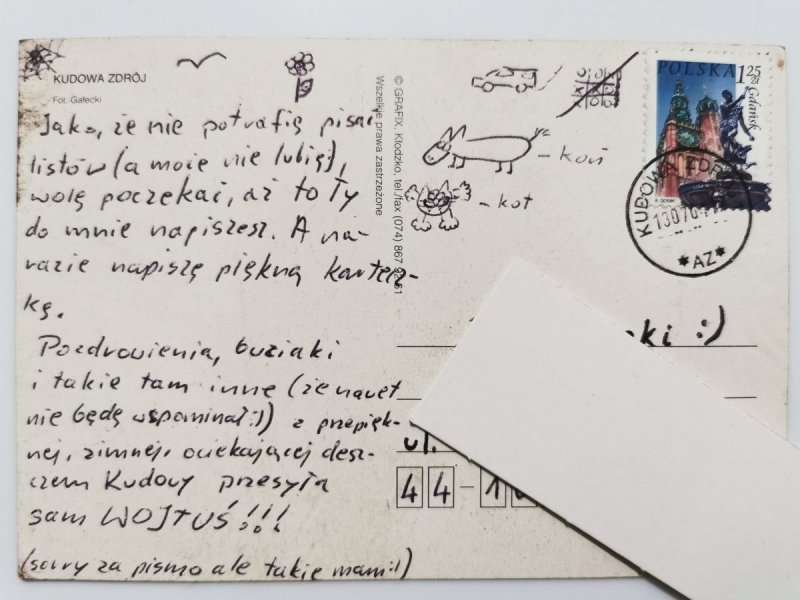 KUDOWA ZDRÓJ
Fot. Gałecki
Jako, że nie potrafię pisać
listów (a może nie lubię),
wolę poczekać, aż to Ty
do mnie napiszesz. A na-
razie napiszę piękną kartecz-
kę.
Pozdrowienia, buziaki
i takie tam inne (że nawet
nie będę wspominał:))) z przepięk-
nej, zimnej, ociekającej desz-
czem Kudowy przesyła
sam WOJTUŚ!!!
(sorry za pismo ale takie mam:))
© GRAFIX, Kłodzko, tel./fax (074) 867
Wszelkie prawa zastrzeżone
- koń
- kot
POLSKA 1,25 zł
Gdańsk
KUDOWA ZDR
130704
*AZ*
ki :)
ul.
44-1